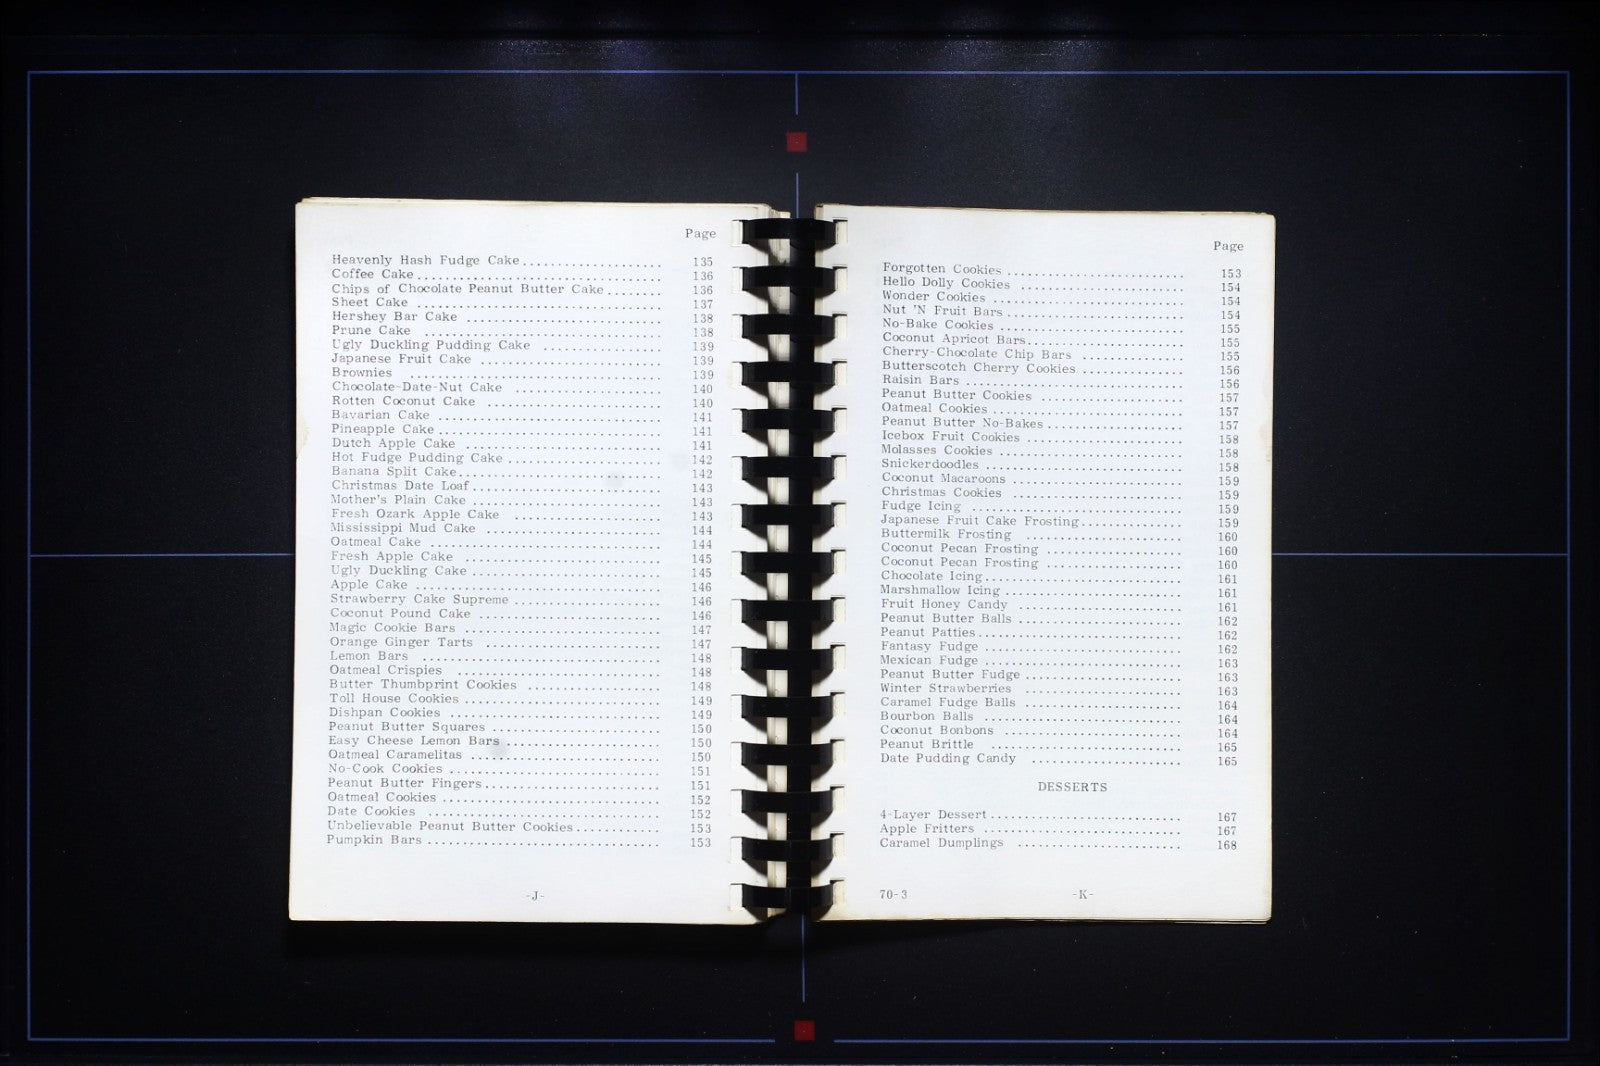 Page
Heavenly Hash Fudge Cake.................... 135
Coffee Cake................................... 136
Chips of Chocolate Peanut Butter Cake........ 136
Sheet Cake ................................... 137
Hershey Bar Cake ............................ 138
Prune Cake .................................. 138
Ugly Duckling Pudding Cake ................. 139
Japanese Fruit Cake .......................... 139
Brownies .................................... 139
Chocolate-Date-Nut Cake ..................... 140
Rotten Coconut Cake ......................... 140
Bavarian Cake ................................ 141
Pineapple Cake................................ 141
Dutch Apple Cake ............................ 141
Hot Fudge Pudding Cake ...................... 142
Banana Split Cake............................. 142
Christmas Date Loaf........................... 143
Mother's Plain Cake ........................... 143
Fresh Ozark Apple Cake ..................... 143
Mississippi Mud Cake ......................... 144
Oatmeal Cake ................................. 144
Fresh Apple Cake ............................ 145
Ugly Duckling Cake ........................... 145
Apple Cake ................................... 146
Strawberry Cake Supreme ..................... 146
Coconut Pound Cake .......................... 146
Magic Cookie Bars ............................ 147
Orange Ginger Tarts ......................... 147
Lemon Bars .................................. 148
Oatmeal Crispies ............................. 148
Butter Thumbprint Cookies ................... 148
Toll House Cookies ............................ 149
Dishpan Cookies .............................. 149
Peanut Butter Squares ........................ 150
Easy Cheese Lemon Bars ...................... 150
Oatmeal Caramelitas ........................... 150
No-Cook Cookies .............................. 151
Peanut Butter Fingers......................... 151
Oatmeal Cookies ............................... 152
Date Cookies ................................. 152
Unbelievable Peanut Butter Cookies............ 153
Pumpkin Bars ................................. 153
-J-
Page
Forgotten Cookies .......................... 153
Hello Dolly Cookies ........................ 154
Wonder Cookies ............................ 154
Nut 'N Fruit Bars .......................... 154
No-Bake Cookies ........................... 155
Coconut Apricot Bars....................... 155
Cherry-Chocolate Chip Bars ............... 155
Butterscotch Cherry Cookies ............... 156
Raisin Bars ................................ 156
Peanut Butter Cookies ..................... 157
Oatmeal Cookies ............................ 157
Peanut Butter No-Bakes .................... 157
Icebox Fruit Cookies ....................... 158
Molasses Cookies ........................... 158
Snickerdoodles ............................. 158
Coconut Macaroons ......................... 159
Christmas Cookies ......................... 159
Fudge Icing ............................... 159
Japanese Fruit Cake Frosting............... 159
Buttermilk Frosting ....................... 160
Coconut Pecan Frosting .................... 160
Coconut Pecan Frosting .................... 160
Chocolate Icing............................. 161
Marshmallow Icing .......................... 161
Fruit Honey Candy ......................... 161
Peanut Butter Balls ........................ 162
Peanut Patties.............................. 162
Fantasy Fudge ............................. 162
Mexican Fudge ............................. 163
Peanut Butter Fudge ....................... 163
Winter Strawberries ....................... 163
Caramel Fudge Balls ....................... 164
Bourbon Balls ............................. 164
Coconut Bonbons .......................... 164
Peanut Brittle ............................ 165
Date Pudding Candy ...................... 165
DESSERTS
4-Layer Dessert............................. 167
Apple Fritters ............................. 167
Caramel Dumplings ........................ 168
70-3 -K-